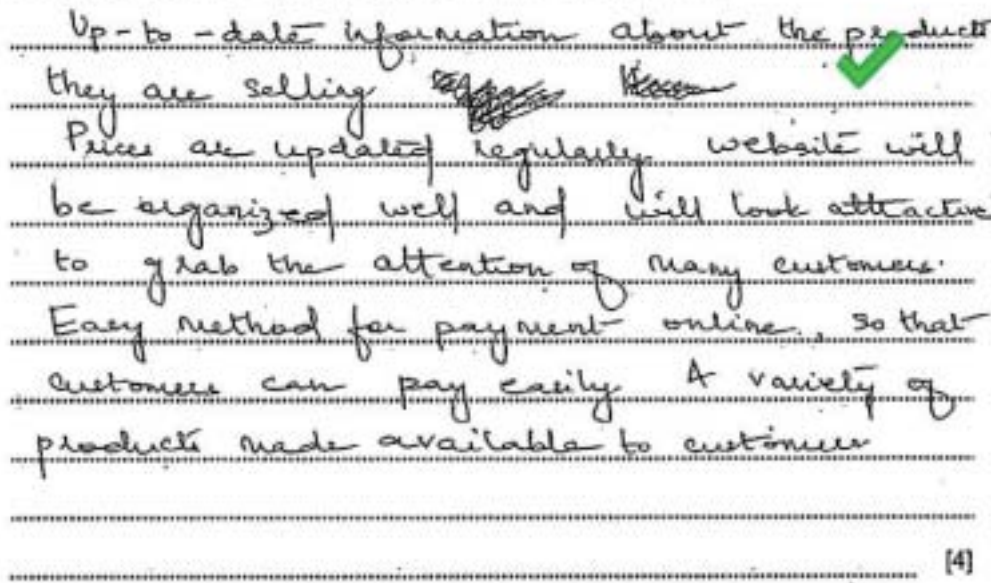 Up-to-date information about the products
they are selling
Prices are updated regularly. website will
be organized well and will look attractive
to grab the attention of many customers.
Easy method for payment online, so that
customers can pay easily. A variety of
products made available to customers
[4]